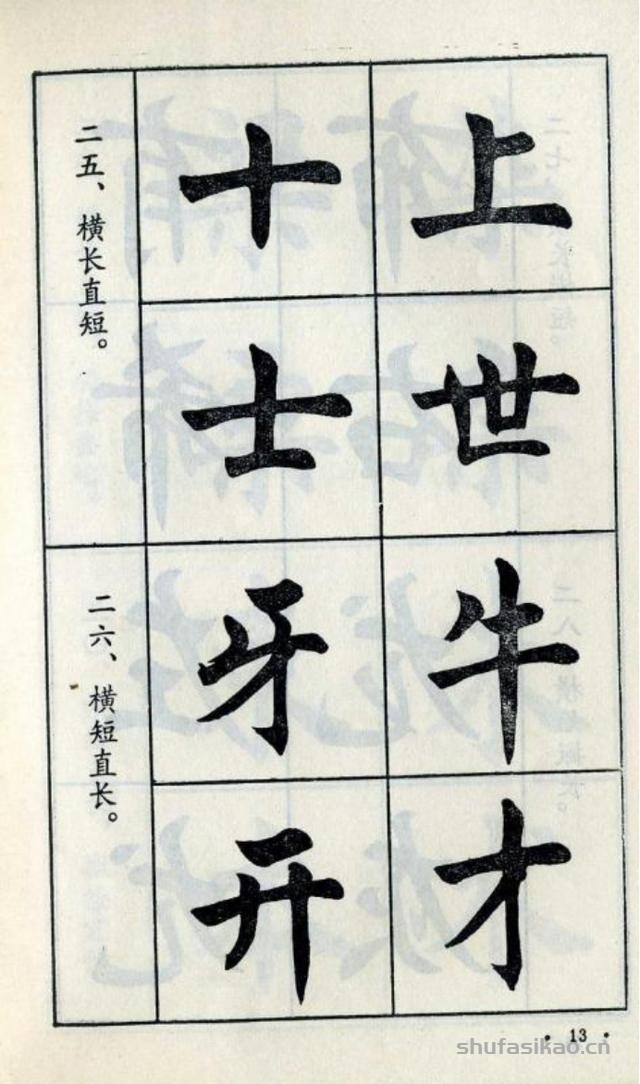 上
世
十
士
二五、横长直短。
牛
才
牙
开
二六、横短直长。
· 13 ·
shufasikao.cn